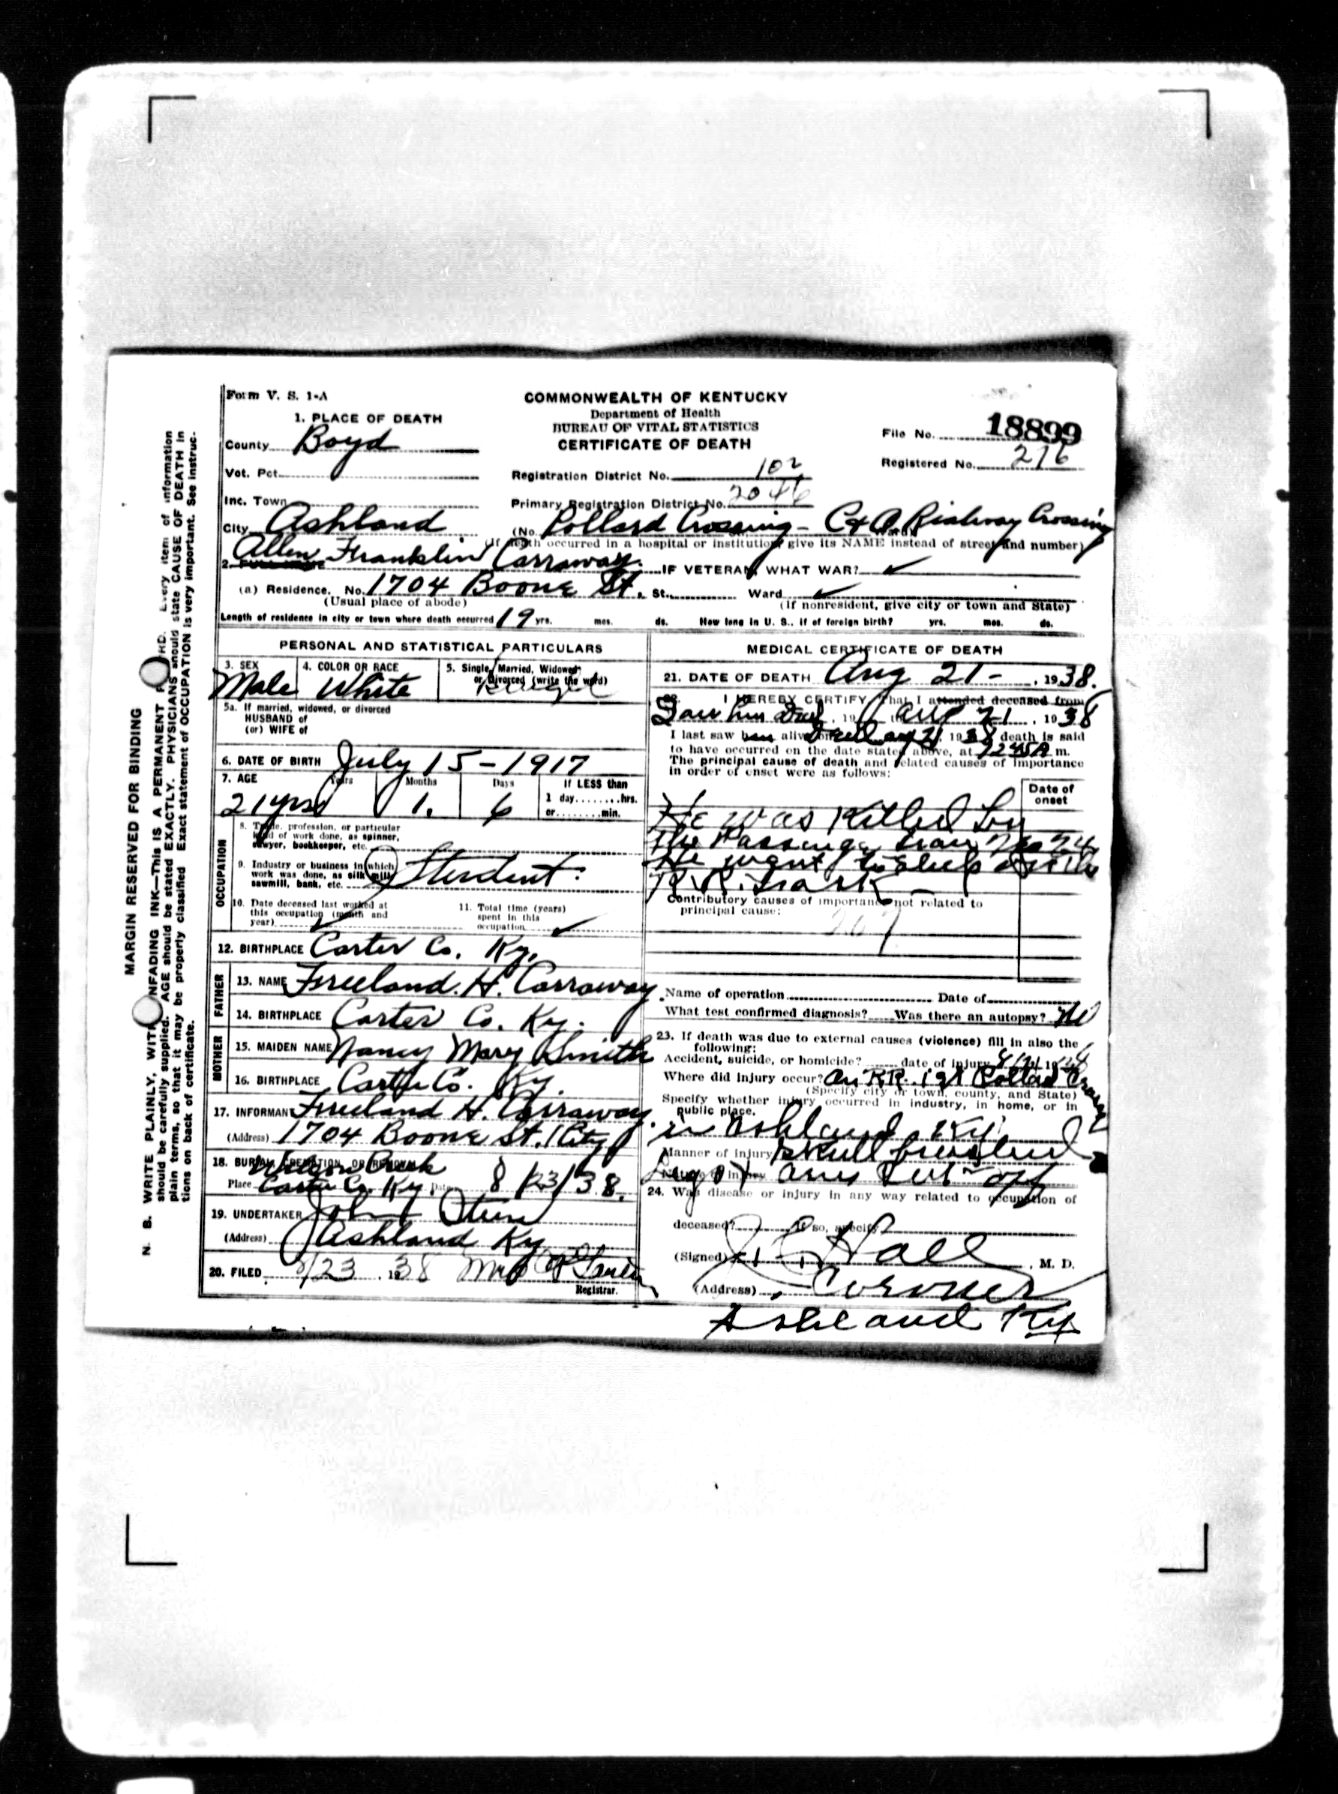 Form V. S. 1-A
COMMONWEALTH OF KENTUCKY
Department of Health
BUREAU OF VITAL STATISTICS
CERTIFICATE OF DEATH
File No. 18899
Registered No. 276
1. PLACE OF DEATH
County Boyd
Vot. Pct.
Inc. Town
City Ashland
Registration District No. 102
Primary Registration District No.
(No. Pollard Crossing - C & O. Railway Crossing
(If death occurred in a hospital or institution, give its NAME instead of street and number)
2. FULL NAME Allen Franklin Carraway. IF VETERAN, WHAT WAR?
(a) Residence. No. 1704 Boone St. St. Ward
(Usual place of abode) (If nonresident, give city or town and State)
Length of residence in city or town where death occurred 19 yrs. mos. ds. How long in U. S., if of foreign birth? yrs. mos. ds.
PERSONAL AND STATISTICAL PARTICULARS
3. SEX Male
4. COLOR OR RACE White
5. Single, Married, Widowed or Divorced (write the word)
5a. If married, widowed, or divorced
HUSBAND of
(or) WIFE of
6. DATE OF BIRTH July 15 - 1917
7. AGE Years Months Days If LESS than
21 yrs 1. 6 1 day........hrs.
or........min.
OCCUPATION
8. Trade, profession, or particular
kind of work done, as spinner,
sawyer, bookkeeper, etc.
9. Industry or business in which
work was done, as silk mill,
sawmill, bank, etc. Student.
10. Date deceased last worked at
this occupation (month and
year)
11. Total time (years)
spent in this
occupation
12. BIRTHPLACE Carter Co. Ky.
FATHER
13. NAME Freeland. H. Carraway
14. BIRTHPLACE Carter Co. Ky.
MOTHER
15. MAIDEN NAME Nancy Mary Smith
16. BIRTHPLACE Carter Co. Ky.
17. INFORMANT Freeland H. Carraway.
(Address) 1704 Boone St. City
18. BURIAL, CREMATION, OR REMOVAL
Place Carter Co. Ky. Date 8/23/38.
19. UNDERTAKER John Steen
(Address) Ashland Ky
20. FILED 8/23, 1938 Mrs
Registrar.
MEDICAL CERTIFICATE OF DEATH
21. DATE OF DEATH Aug 21 - , 1938.
22. I HEREBY CERTIFY, That I attended deceased from
Saw him Dead, 19 Aug 21, 1938
I last saw him alive on Dead Aug 21, 1938 death is said
to have occurred on the date stated above, at m.
The principal cause of death and related causes of importance
in order of onset were as follows:
Date of
onset
He was Killed by
the Passenger train No 24
He went to sleep on the
R.R. track
Contributory causes of importance not related to
principal cause:
Name of operation Date of
What test confirmed diagnosis? Was there an autopsy? No
23. If death was due to external causes (violence) fill in also the
following:
Accident, suicide, or homicide? date of injury
Where did injury occur? on R.R. Pollard Crossing
(Specify city or town, county, and State)
Specify whether injury occurred in industry, in home, or in
public place.
in Ashland Ky
Manner of injury Skull crushed
Nature of injury Legs & arms cut off
24. Was disease or injury in any way related to occupation of
deceased? If so, specify
(Signed) Hall, M. D.
(Address) Coroner
Ashland Ky
MARGIN RESERVED FOR BINDING
N. B. WRITE PLAINLY, WITH UNFADING INK—THIS IS A PERMANENT RECORD. Every item of information
should be carefully supplied. AGE should be stated EXACTLY. PHYSICIANS should state CAUSE OF DEATH in
plain terms, so that it may be properly classified. Exact statement of OCCUPATION is very important. See instruc-
tions on back of certificate.